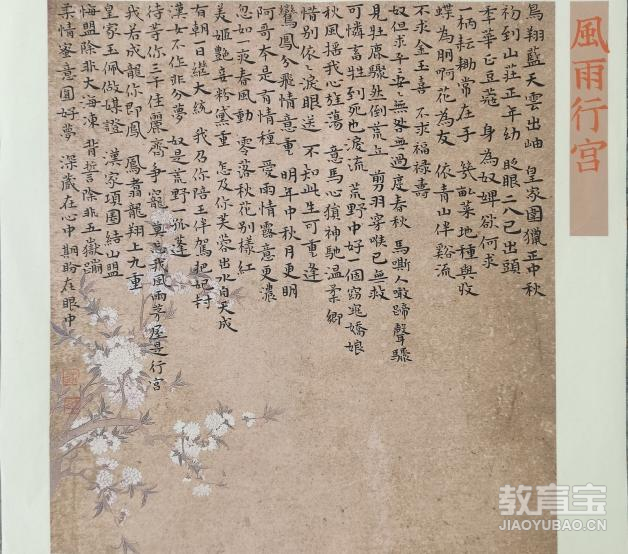 風雨行宫
鳥翔藍天雲出岫 皇家圍獵正中秋
初到山莊正年幼 眨眼二八已出頭
季華正豆蔻 身為奴婢欲何求
一柄耘鋤常在手 幾畝菜地種與收
蝶為朋啊花為友 依青山伴谿流
不求金玉喜 不求福禄壽
奴但求平安無咎無過度春秋 馬嘶人噉蹄聲驟
見牡鹿驟然倒荒丘 剪羽穿喉已無救
可憐畜牲到死也淚流 荒野中好一個窈窕嬌娘
秋風搖我心旌蕩 意馬心猿神馳温柔鄉
惜別依依淚眼送 不知此生可重逢
鸞鳳分飛情意重 明年中秋月更明
阿哥本是有情種 愛雨情露意更濃
忽如一夜春風動 零落秋花別樣紅
美姬艷妾粉黛重 怎及你芙蓉出水自天成
有朝一日繼大統 我乃你陪王伴駕把妃封
漢女不作非分夢 奴是荒野一孤蓬
待等你三千佳麗齊爭寵 莫忘我風雨芽屋是行宫
我若成龍你即鳳 鳳翥龍翔上九重
皇家玉佩做媒證 漢家項圈結山盟
悔盟除非大海凍 背誓除非五嶽蹦
柔情蜜意圓好夢 深藏在心中期盼在眼中
教育宝
JIAOYUBAO.CN